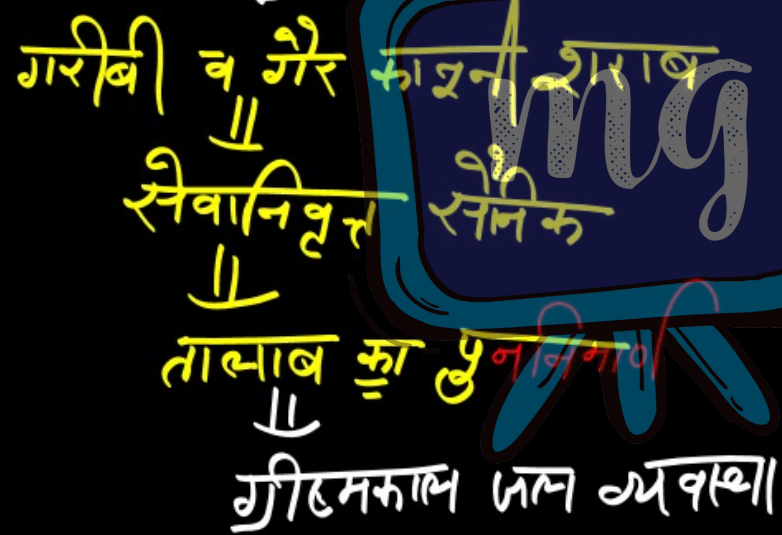 गरीबी व गैर कानूनी शराब
mg
सेवानिवृत्त सैनिक
तालाब का पुननिर्माण
ग्रीष्मकाल जल व्यवस्था